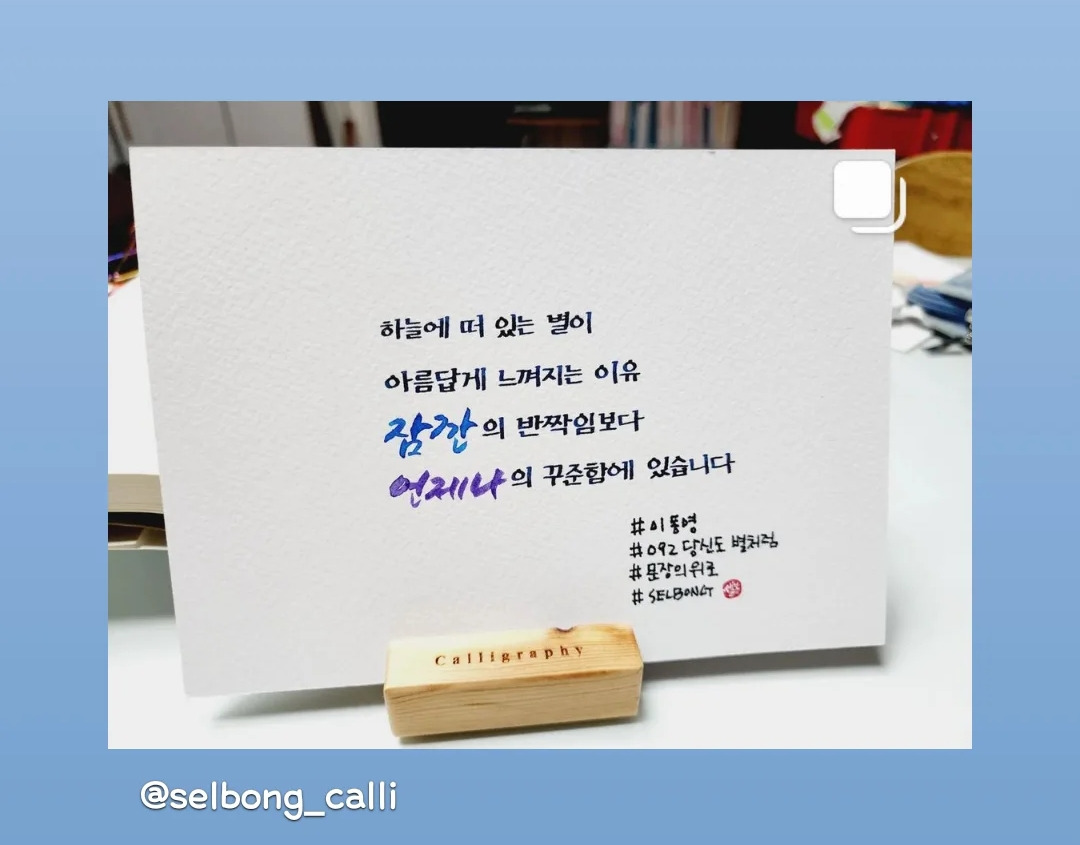 하늘에 떠 있는 별이
아름답게 느껴지는 이유
잠깐의 반짝임보다
언제나의 꾸준함에 있습니다
#이동영
#092 당신도 별처럼
#문장의위로
#SELBONG
Calligraphy
@selbong_calli